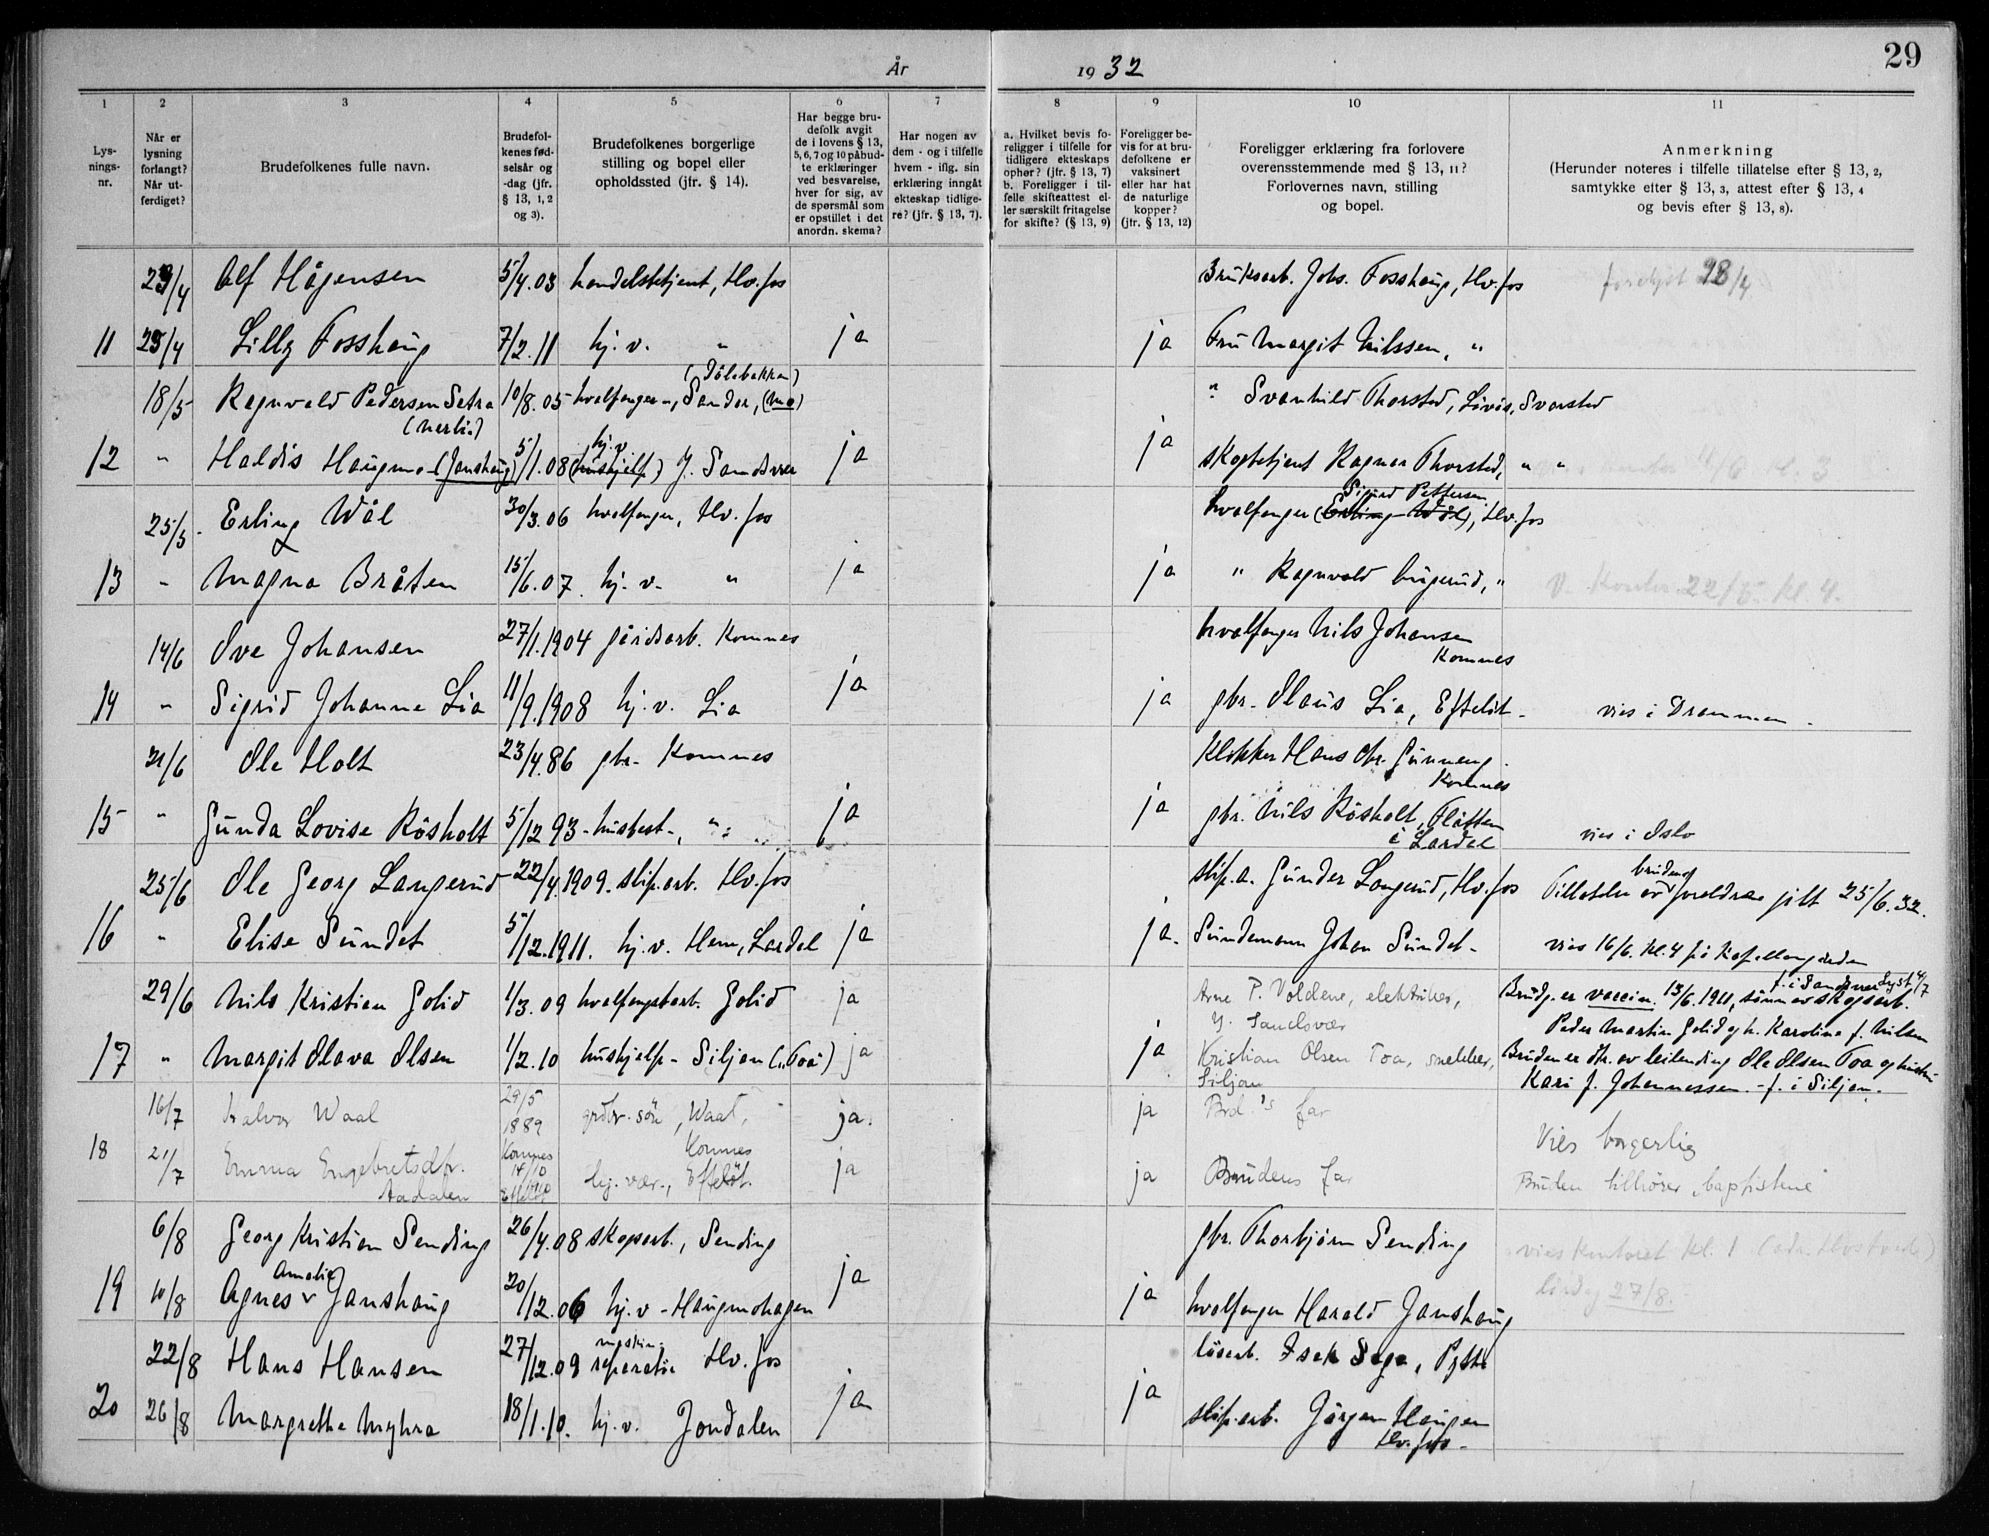 29
År 1932
1 2 3 4 5 6 7 8 9 10 11
Lys-
nings-
nr.
Når er
lysning
forlangt?
Når ut-
ferdiget?
Brudefolkenes fulle navn.
Brudefol-
kenes fød-
selsår og
-dag (jfr.
§ 13, 1, 2
og 3).
Brudefolkenes borgerlige
stilling og bopel eller
opholdssted (jfr. § 14).
Har begge bru-
defolk avgit
de i lovens § 13,
5, 6, 7 og 10 påbud-
te erklæringer
ved besvarelse,
hver for sig, av
de spørsmål som
er opstillet i det
anordn. skema?
Har nogen av
dem - og i tilfelle
hvem - iflg. sin
erklæring inngått
ekteskap tidlige-
re? (jfr. § 13, 7).
a. Hvilket bevis fo-
religger i tilfelle for
tidligere ekteskaps
ophør? (jfr. § 13, 7)
b. Foreligger i til-
felle skifteattest el-
ler særskilt fritagelse
for skifte? (§ 13, 9)
Foreligger be-
vis for at bru-
defolkene er
vaksinert
eller har hat
de naturlige
kopper?
(jfr. § 13, 12)
Foreligger erklæring fra forlovere
overensstemmende med § 13, 11?
Forlovernes navn, stilling
og bopel.
Anmerkning
(Herunder noteres i tilfelle tillatelse efter § 13, 2,
samtykke etter § 13, 3, attest efter § 13, 4
og bevis efter § 13, 8).
23/4 Alf Hågensen 5/4.03 handelsbetjent, Hv.fos Bruksarb. Johs. Fosshaug, Hv.fos 28/4
11 25/4 Lilly Fosshaug 7/2.11 hj.v. " ja ja Fru Margit Nilssen, "
18/5 Ragnvald Pedersen Setra 10/8.05 hvalfanger-, Sander, (Mo) " Svanhild Thorsted, Svarstad
12 " Haldis Haugmo (Janshaug) 5/1.08 hj.v. (hushjelp) Y. Sandsvær ja ja skogbetjent Ragnar Thorsted, " "
25/5 Erling Wål 30/3.06 hvalfanger, Hv.fos hvalfanger (Erling Wål) Sigurd Pettersen, Hv.fos
13 " Magna Bråten 15/6.07 hj.v. " ja ja " Ragnvald "
14/6 Ove Johansen 27/1.1904 gårdsarb. Komnes hvalfanger Nils Johansen
Komnes
14 " Sigrid Johanne Lia 11/9.1908 hj.v. Lia ja ja gbr. Olaus Lia, Efteløt - vies i Drammen.
21/6 Ole Holt 23/4.86 gbr. Komnes Klokker Hans Chr. Gunneng.
Komnes
15 " Gunda Lovise Røsholt 5/12 93 - husbest-, " ja ja gbr. Nils Røsholt, Flåtten
i Lardal vies i Oslo
25/6 Ole Georg Langerud 22/4.1909. slip.arb. Hv.fos slip.a. Gunder Langerud, Hv.fos Tillatelse av brudens foreldre gitt 25/6.32.
16 " Elise Sundet 5/12.1911. hj.v. Hem, Lardal ja ja. Sundemann Johan Sundet - vies 16/6. kl. 4 på Kapellangården
29/6 Nils Kristian Golid 1/3.09 hvalfangstarb. Golid ja Arne P. Voldene, elektriker,
Y. Sandsvær
Brudg. er vaccin. 13/6.1911, sønn av skogsarb.
f. i Sandsvær Lyst 4/7
Peder Martin Golid og h. Karoline f. Nilsen
17 " Margit Olava Olsen 1/2.10 hushjelp - Siljan ("Toa") ja ja Kristian Olsen Toa, snekker,
Siljan
Bruden er dtr. av leilending Ole Olsen Toa og hustru
Kari f. Johannessen - f. i Siljan.
16/7 Halvor Waal 29/5
1889
Komnes grdbr. søn, Waal,
Komnes ja. ja Brd.'s far Vies borgerlig
18 21/7 Emma Engebretsdtr.
Aadalen 14/10 hj. vær-, Efteløt. ja ja Brudens far Bruden tilhører baptistene
6/8 Georg Kristian Sending 26/4.08 skogsarb., Sending gbr. Thorbjørn Sending vies kontoret kl. 1
19 10/8 Agnes Amalie Janshaug 20/12.06 hj.v - Haugmohagen ja ja hvalfanger Harald Janshaug lørdag 27/8.
22/8 Hans Hansen 27/12.09 maskinreparatør Hv.fos løsarb. Isak
20 26/8 Margrethe Myhra 18/1.10. hj.v. Jondalen ja ja slip.arb. Jørgen Haugen
Hv.fos -